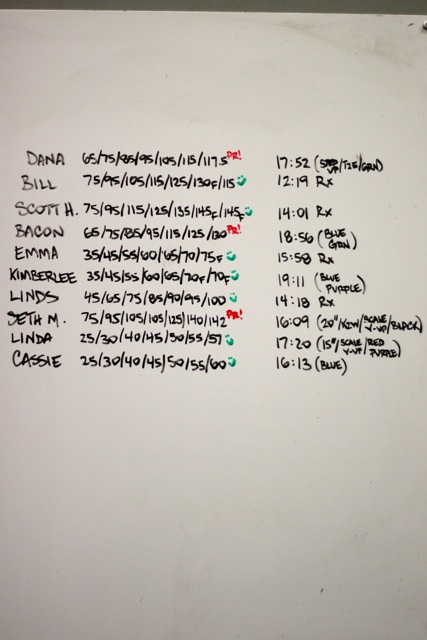 DANA 65/75/85/95/105/115/117.5 PR! 17:52 (STEP UP/T2E/GRN)
BILL 75/95/105/115/125/130F/115 12:19 Rx
SCOTT H. 75/95/115/125/135/145F/145F 14:01 Rx
BACON 65/75/85/95/115/125/130 PR! 18:56 (BLUE GRN)
EMMA 35/45/55/60/65/70/75F 15:58 Rx
KIMBERLEE 35/45/55/60/65/70F/70F 19:11 (BLUE PURPLE)
LINDS 45/65/75/85/90/95/100 14:18 Rx
SETH M. 75/95/105/105/125/140/142 PR! 16:09 (20"/KEW/SCALE V-UP/BLACK)
LINDA 25/30/40/45/50/55/57 17:20 (15"/SCALE V-UP/RED PURPLE)
CASSIE 25/30/40/45/50/55/60 16:13 (BLUE)